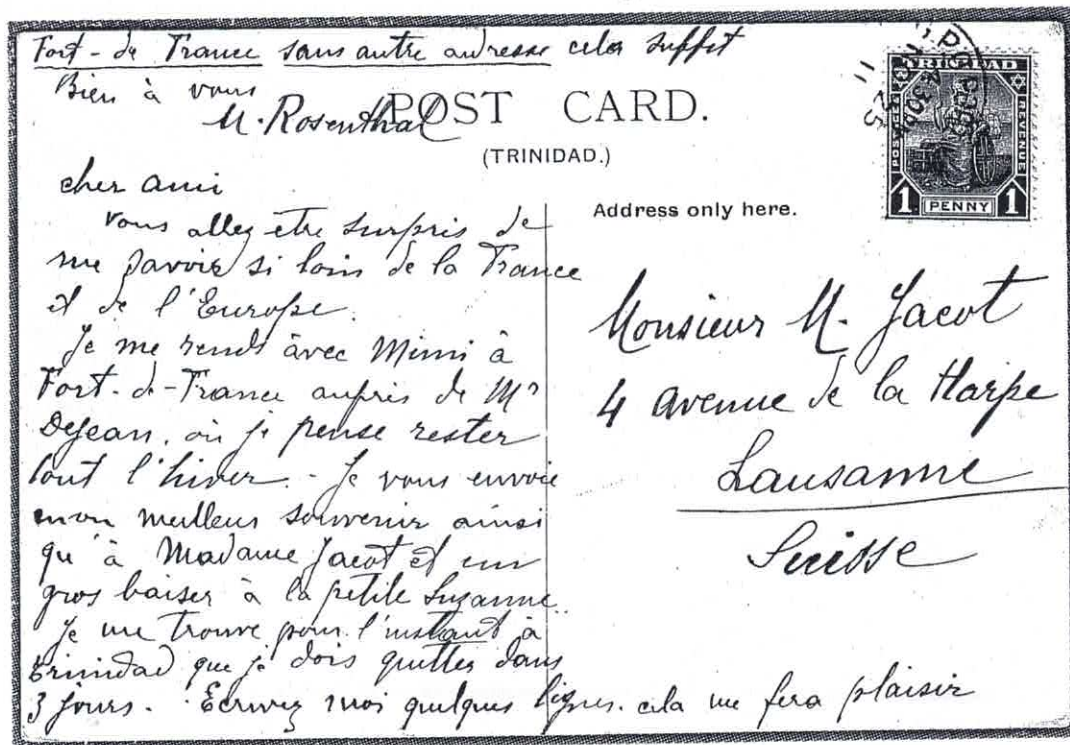 Fort-de France sans autre adresse cela suffit
Bien à vous
M. Rosenthal
POST CARD.
(TRINIDAD.)
TRINIDAD
POSTAGE
REVENUE
1 PENNY 1
Address only here.
cher ami
Vous allez être surpris de
me savoir si loin de la France
et de l'Europe.
Je me rends avec Mimi à
Fort-de-France auprès de Mr
Dejean, où je pense rester
tout l'hiver. - Je vous envoie
mon meilleur souvenir ainsi
qu'à Madame Jacot et un
gros baiser à la petite Suzanne.
Je me trouve pour l'instant à
Trinidad que je dois quitter dans
3 jours. - Ecrivez moi quelques lignes. cela me fera plaisir
Monsieur M. Jacot
4 avenue de la Harpe
Lausanne
Suisse